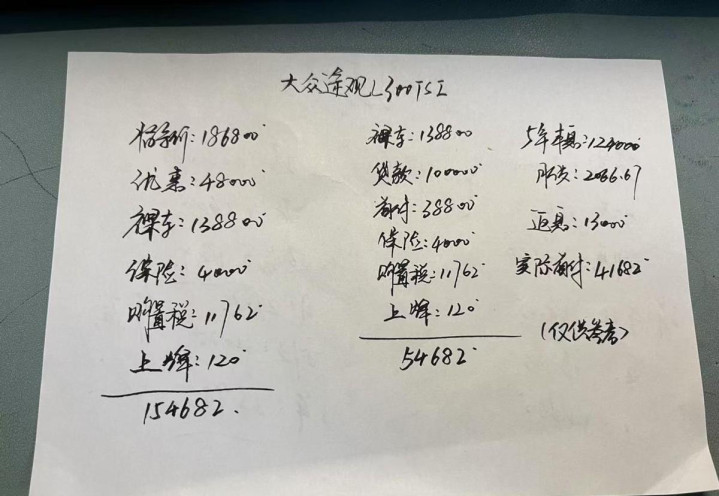 大众途观L300TSI
指导价:186800
优惠:48000
裸车:138800
保险:4000
购置税:11762
上牌:120
154682.
裸车:138800
贷款:100000
首付:38800
保险:4000
购置税:11762
上牌:120
54682
5年本息:124000
月供:2066.67
返息:13000
实际首付:41682
(仅供参考)